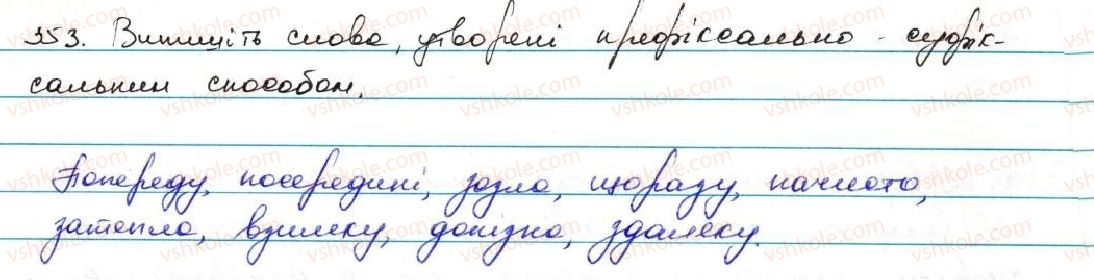 353. Випишіть слова, утворені префіксально-суфік-
сальним способом.
Попереду, посередині, зозла, щоразу, начисто,
затепла, взимку, допізна, здалеку.